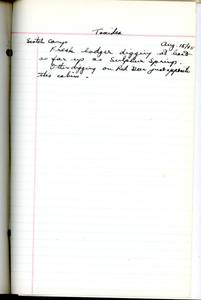 Taxidea
Scotch Camp Aug. 15/45
Fresh badger digging at least
as far up as Sulphur Springs.
Other digging on Red Deer just opposite
this cabin.